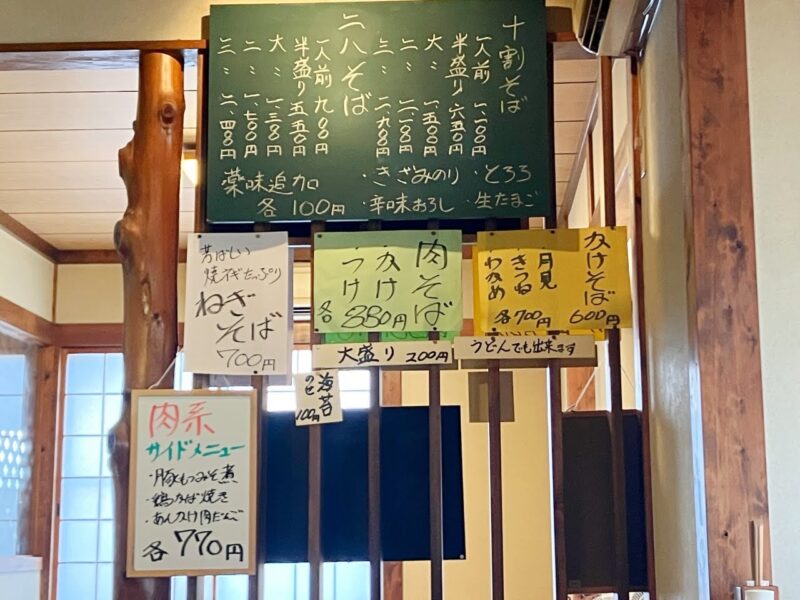 十割そば
一人前 一、一〇〇円
半盛り 六五〇円
大〃 一、五〇〇円
二〃 二、一〇〇円
三〃 二、九〇〇円
二八そば
一人前 九〇〇円
半盛り 五五〇円
大〃 一、三〇〇円
二〃 一、七〇〇円
三〃 二、四〇〇円
薬味追加
各100円
・きざみのり
・とろろ
・辛味おろし
・生たまご
かけそば
600円
・月見
・きつね
・わかめ
各700円
肉そば
・かけ
・つけ
各880円
芳ばしい
焼ネギたっぷり
ねぎそば
700円
大盛り 200円
うどんでも出来ます
海苔
のせ
100円
肉系
サイドメニュー
・豚もつみそ煮
・鶏かば焼き
・あんかけ肉だんご
各770円